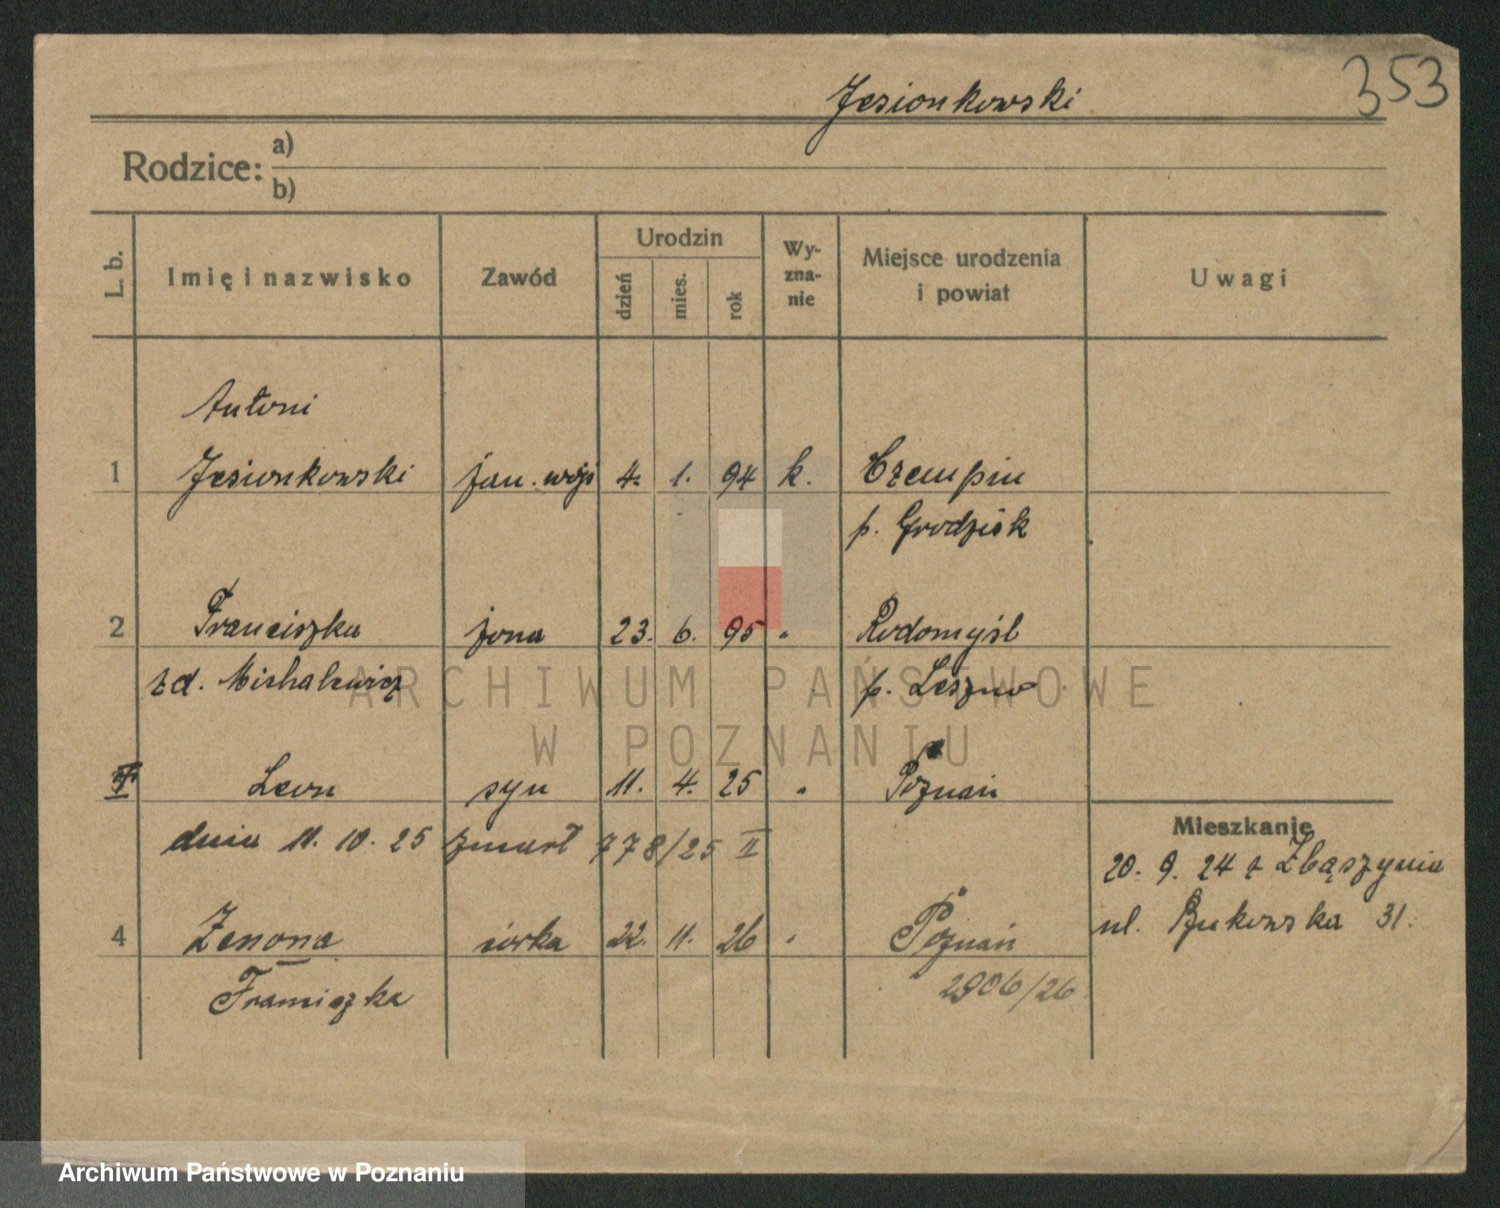 353
Jesionkowski
Rodzice: a)
b)
L. b.
Imię i nazwisko
Zawód
Urodzin
dzień
mies.
rok
Wy-
zna-
nie
Miejsce urodzenia
i powiat
Uwagi
Antoni
1 Jesionkowski 4. 1. 94 k. Czempin
p. Grodzisk
2 Franciszka żona 23. 6. 95 " Radomyśl
zd. Michalewicz p. Leszno
Leon syn 11. 4. 25 " Poznań
dnia 11. 10. 25 zmarł 778/25 II
Mieszkanie
20. 9. 24 z Zbąszynia
ul. Bukowska 31.
4 Zenona córka 22. 11. 26 " Poznań
Franciszka 2906/26
ARCHIWUM PAŃSTWOWE
W POZNANIU
Archiwum Państwowe w Poznaniu